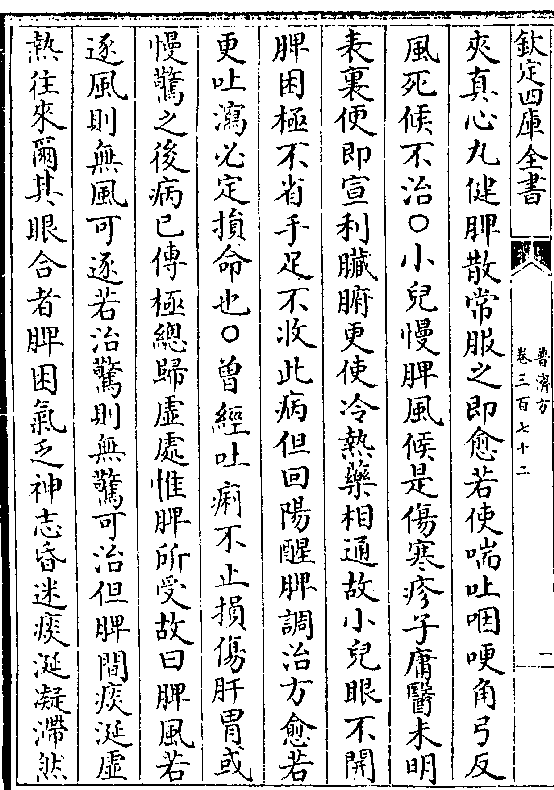 欽定四庫全書
普濟方
卷三百七十二
一
夾真心丸健脾散常服之即愈若使喘吐咽哽角弓反
風死候不治○小兒慢脾風候是傷寒疹子庸醫未明
表裏便即宣利臟腑更使冷熱藥相通故小兒眼不開
脾困極不省手足不收此病但回陽醒脾調治方愈若
更吐瀉必定損命也○曾經吐痢不止損傷肝胃或
慢驚之後病已傳極總歸虛處惟脾所受故曰脾風若
逐風則無風可逐若治驚則無驚可治但脾間痰涎虛
熱往來爾其眼合者脾困氣乏神志昏迷痰涎凝滯然